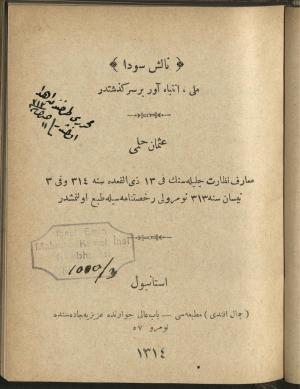 ﴿ نالش سودا ﴾
ملی ، انتباه آور بر سرگذشتدر
عثمان حلمی
معارف نظارت جلیله‌سنك فی ١٣ ذی القعده سنه ٣١٤ وفی ٣
نیسان سنه ٣١٣ نومرولی رخصتنامه‌سیله طبع اولنمشدر
1000/3
استانبول
( جمال افندی ) مطبعه‌سی — باب عالی جوارنده عزیزیه جاده‌سنده
نومرو ٥٧
١٣١٤